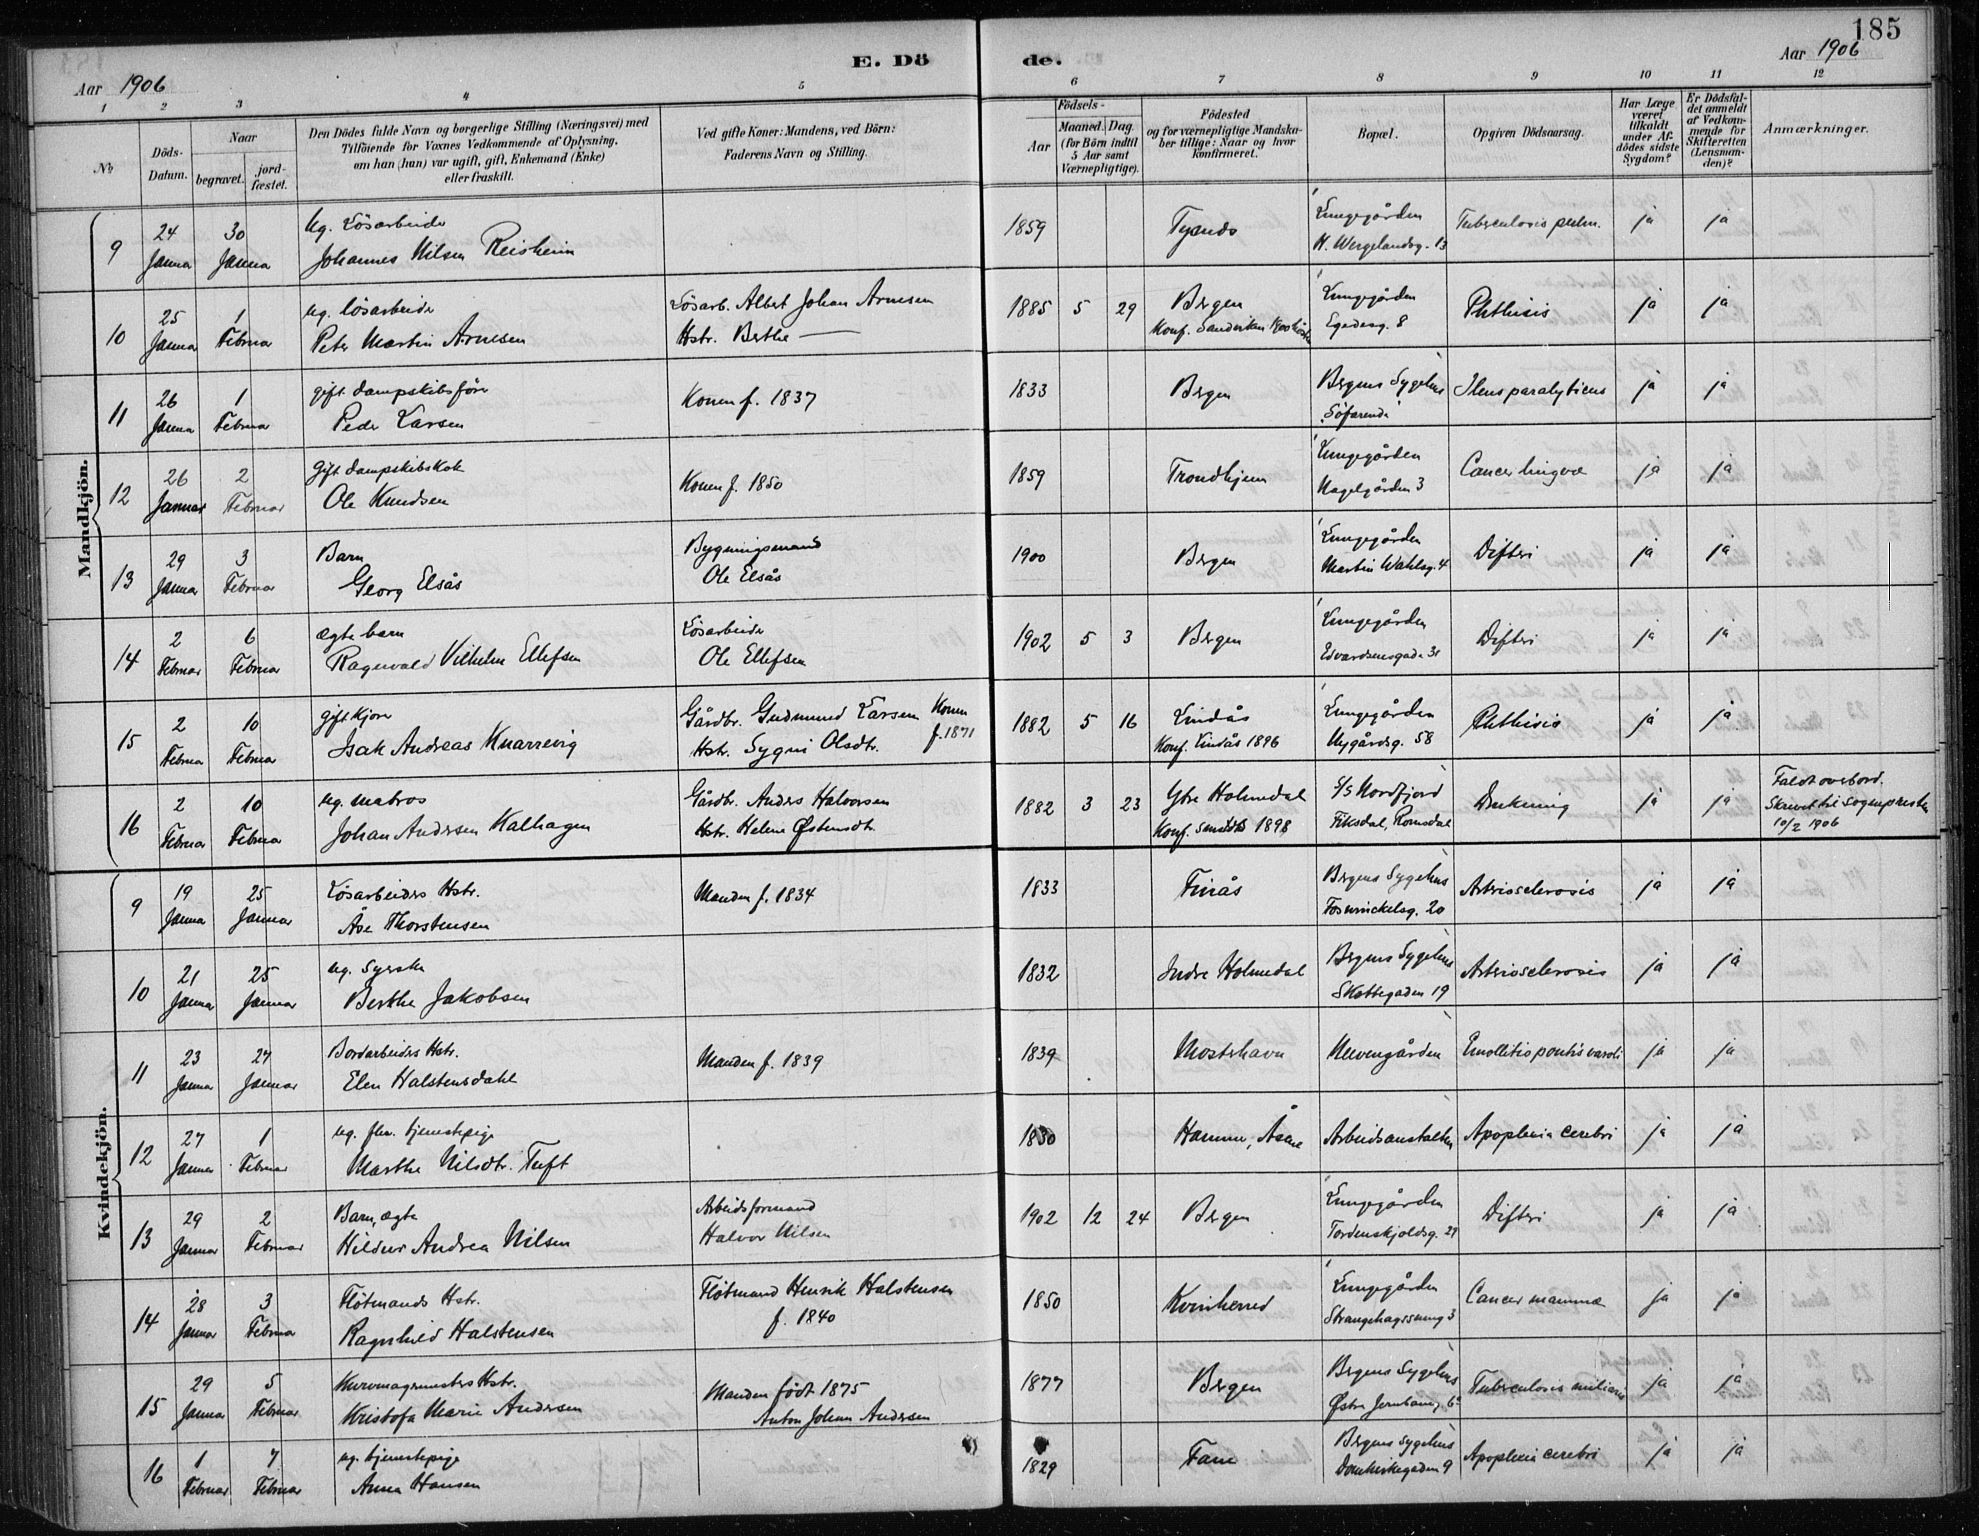 185
E. Dö de.
Aar 1906
Aar 1906
1 2 3 4 5 6 7 8 9 10 11 12
No
Döds-Datum.
Naar
begravet.
jord-fæstet.
Den Dödes fulde Navn og borgerlige Stilling (Næringsvei) med
Tilföiende for Voxnes Vedkommende af Oplysning,
om han (hun) var ugift, gift, Enkemand (Enke)
eller fraskilt.
Ved gifte Koner: Mandens, ved Börn:
Faderens Navn og Stilling.
Födsels-
Aar
Maaned.
Dag.
(for Börn indtil
5 Aar samt
Værnepligtige).
Födested
og for værnepligtige Mandska-
ber tillige: Naar og hvor
konfirmeret.
Bopæl.
Opgiven Dödsaarsag.
Har Læge
været
tilkaldt
under Af-
dödes sidste
Sygdom?
Er Dödsfal-
det anmeldt
af Vedkom-
mende for
Skifteretten
(Lensman-
den)?
Anmærkninger.
Mandkjön.
9 24 Januar 30 Januar ug. Lösarbeider Johannes Nilsen Reisheim 1859 Lungegården H. Wergelandsg. 13 Tuberculosis pulm. ja ja
10 25 Januar 1 Februar ug. lösarbeider Peter Martin Arnesen Lösarb. Albert Johan Arnesen Hstr. Berthe — 1885 5 29 Bergen Konf. Sandviken Lungegården Egedesg. 8 Phthisis ja ja
11 26 Januar 1 Februar gift dampskibsförer Peder Larsen Konen f. 1837 1833 Bergen Bergens Sygehus Söfarende Ileus paralyticus ja ja
12 26 Januar 2 Februar gift dampskibskok Ole Knudsen Konen f. 1850 1859 Trondhjem Lungegården Nagelgården 3 Cancer lingvæ ja ja
13 29 Januar 3 Februar Barn Georg Elsås Bygningsmand Ole Elsås 1900 Bergen Lungegården Martin Wahlsg. 4 Difteri ja ja
14 2 Februar 6 Februar ægte barn Ragnvald Vilhelm Ellefsen Lösarbeider Ole Ellefsen 1902 5 3 Bergen Lungegården Edvardsensgade Difteri ja ja
15 2 Februar 10 Februar gift Isak Andreas Knarrevig Gårdbr. Gudmund Larsen Hstr. Sygni Olsdtr. Konen f. 1871 1882 5 16 Lindås Konf. Lindås 1896 Lungegården Nygårdsg. 58 Phthisis ja ja
16 2 Februar 10 Februar ug. matros Johan Andersen Kalhagen Gårdbr. Anders Halvorsen Hstr. Helene Østensdtr. 1882 3 23 Ytre Holmedal Konf. 1898 S/S Nordfjord Fiksdal, Romsdal Drukning ja ja Faldt overbord. Skrevet til Sognepresten 10/2 1906
Kvindekjön.
9 19 Januar 25 Januar Lösarbeiders Hstr. Åse Thorstensen Manden f. 1834 1833 Finås Bergens Sygehus Foswinckelsg. 20 Arteriosclerosis ja ja
10 21 Januar 25 Januar ug. Syerske Berthe Jakobsen 1832 Indre Holmedal Bergens Sygehus Skottegaden 19 Arteriosclerosis ja ja
11 23 Januar 27 Januar Bordarbeiders Hstr. Elen Halstensdahl Manden f. 1839 1839 Mosterhavn Neevengården Emollitio pontis varoli ja ja
12 27 Januar 1 Februar ug. fhv. tjenestepige Marthe Nilsdtr. Tuft 1830 Hamre, Åsane Arbeidsanstalten Apoplexia cerebri ja ja
13 29 Januar 2 Februar Barn, ægte Hildur Andrea Nilsen Arbeidsformand Halvor Nilsen 1902 12 24 Bergen Lungegården Tordenskjoldsg. 29 Difteri ja ja
14 28 Januar 3 Februar Flötmands Hstr. Ragnhild Halstensen Flötmand Henrik Halstensen f. 1840 1850 Kvinherred Lungegården Strangehagssmug 3 Cancer mammæ ja ja
15 29 Januar 5 Februar Kurvmagermesters Hstr. Kristofa Marie Andersen Manden födt 1875 Anton Johan Andersen 1877 Bergen Bergens Sygehus Østre Jernbaneg. Tuberculosis miliaris ja ja
16 1 Februar 7 Februar ug. tjenestepige Anna Hansen 1829 Fane Bergens Sygehus Domkirkegaden 9 Apoplexia cerebri ja ja